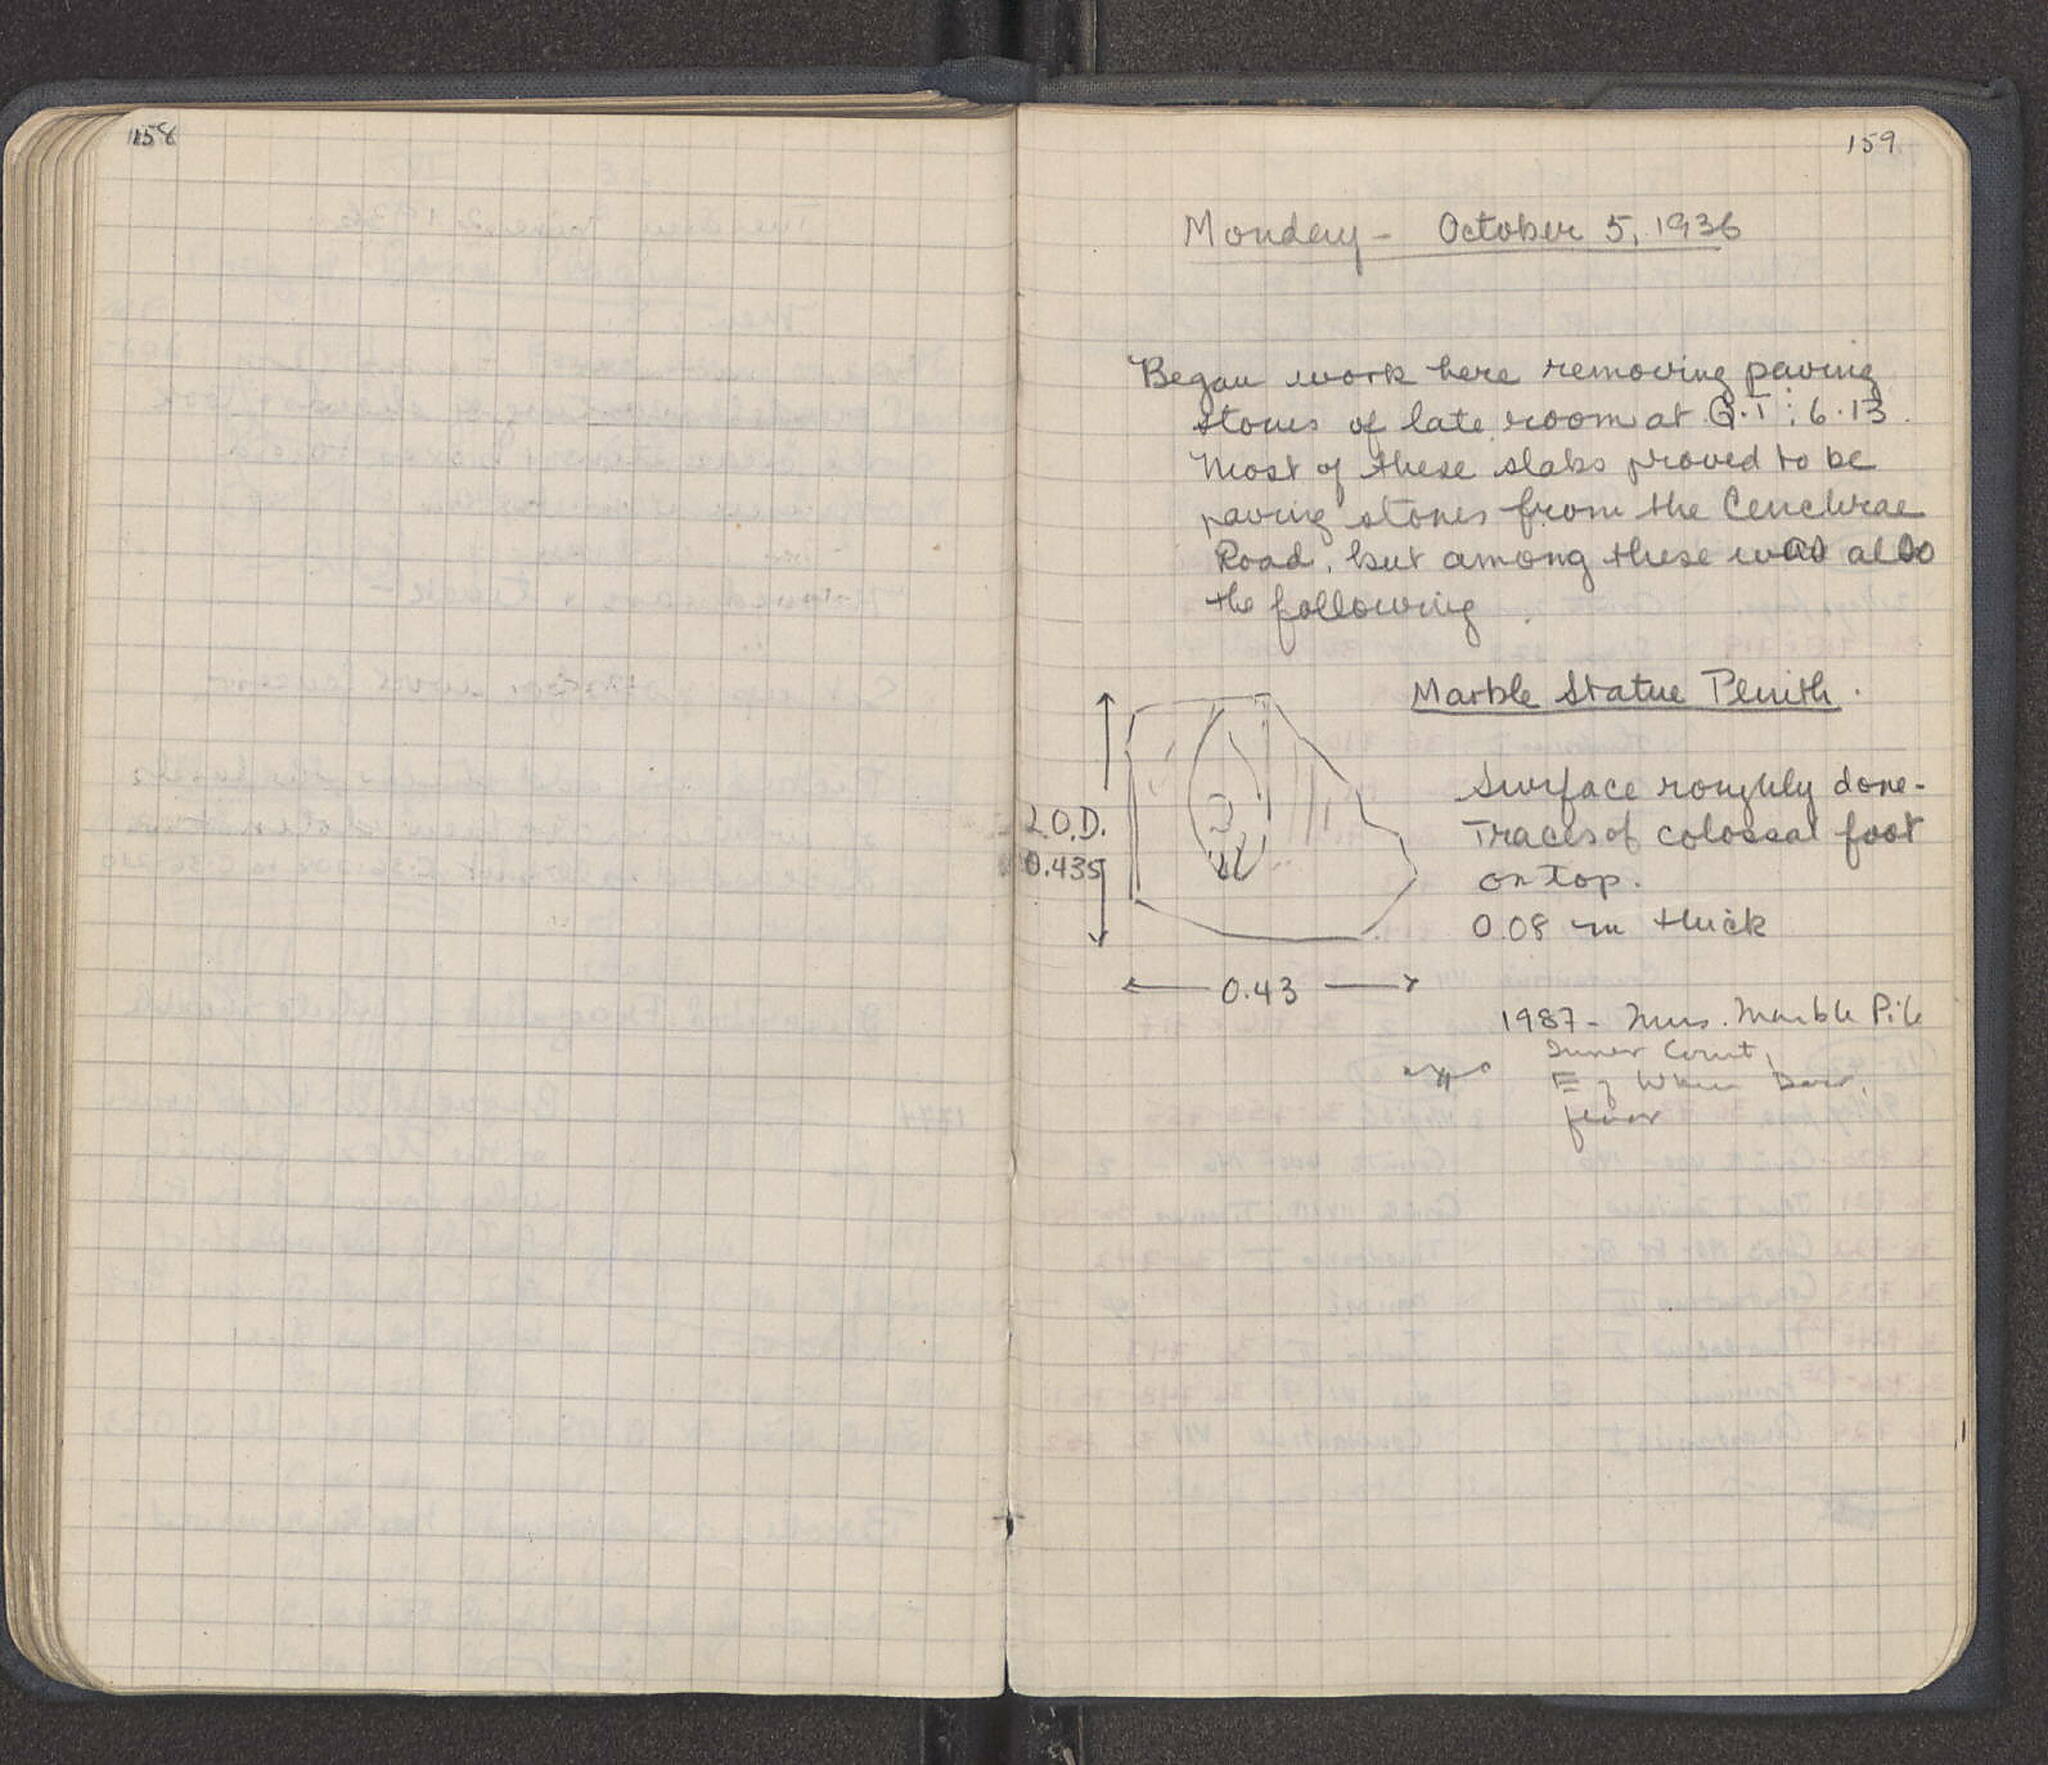 158
159
Monday - October 5, 1936
Began work here removing paving
stones of late room at G.T : 6.13.
Most of these slabs proved to be
paving stones from the Cenchrae
Road, but among these was also
the following
Marble Statue Plinth.
Surface roughly done-
Traces of colossal foot
on top.
0.08 m thick
L.O.D.
0.435
0.43
1987- Mus. Marble Pile
Inner Court,
E of Door,